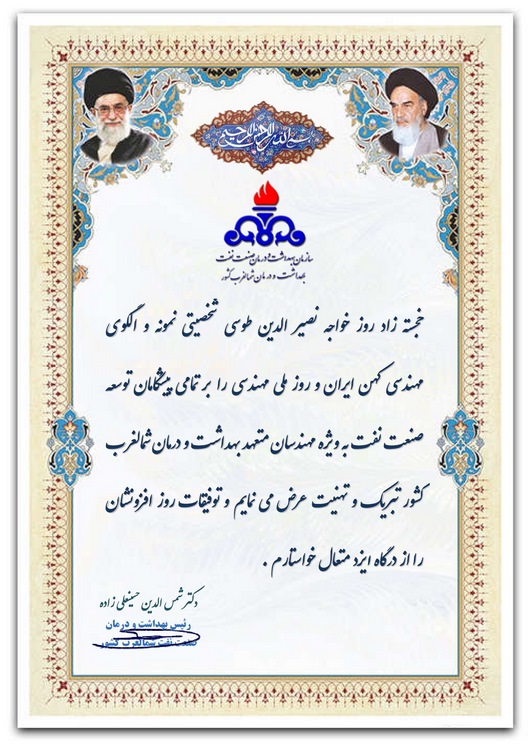 بسم الله الرحمن الرحیم
سازمان بهداشت و درمان صنعت نفت
بهداشت و درمان شمالغرب کشور
خجسته زاد روز خواجه نصیر الدین طوسی شخصیتی نمونه و الگوی
مهندسی کهن ایران و روز ملی مهندسی را بر تمامی پیشگامان توسعه
صنعت نفت به ویژه مهندسان متعهد بهداشت و درمان شمالغرب
کشور تبریک و تهنیت عرض می نمایم و توفیقات روز افزونشان
را از درگاه ایزد متعال خواستارم .
دکتر شمس الدین حسینعلی زاده
رئیس بهداشت و درمان
صنعت نفت شمالغرب کشور